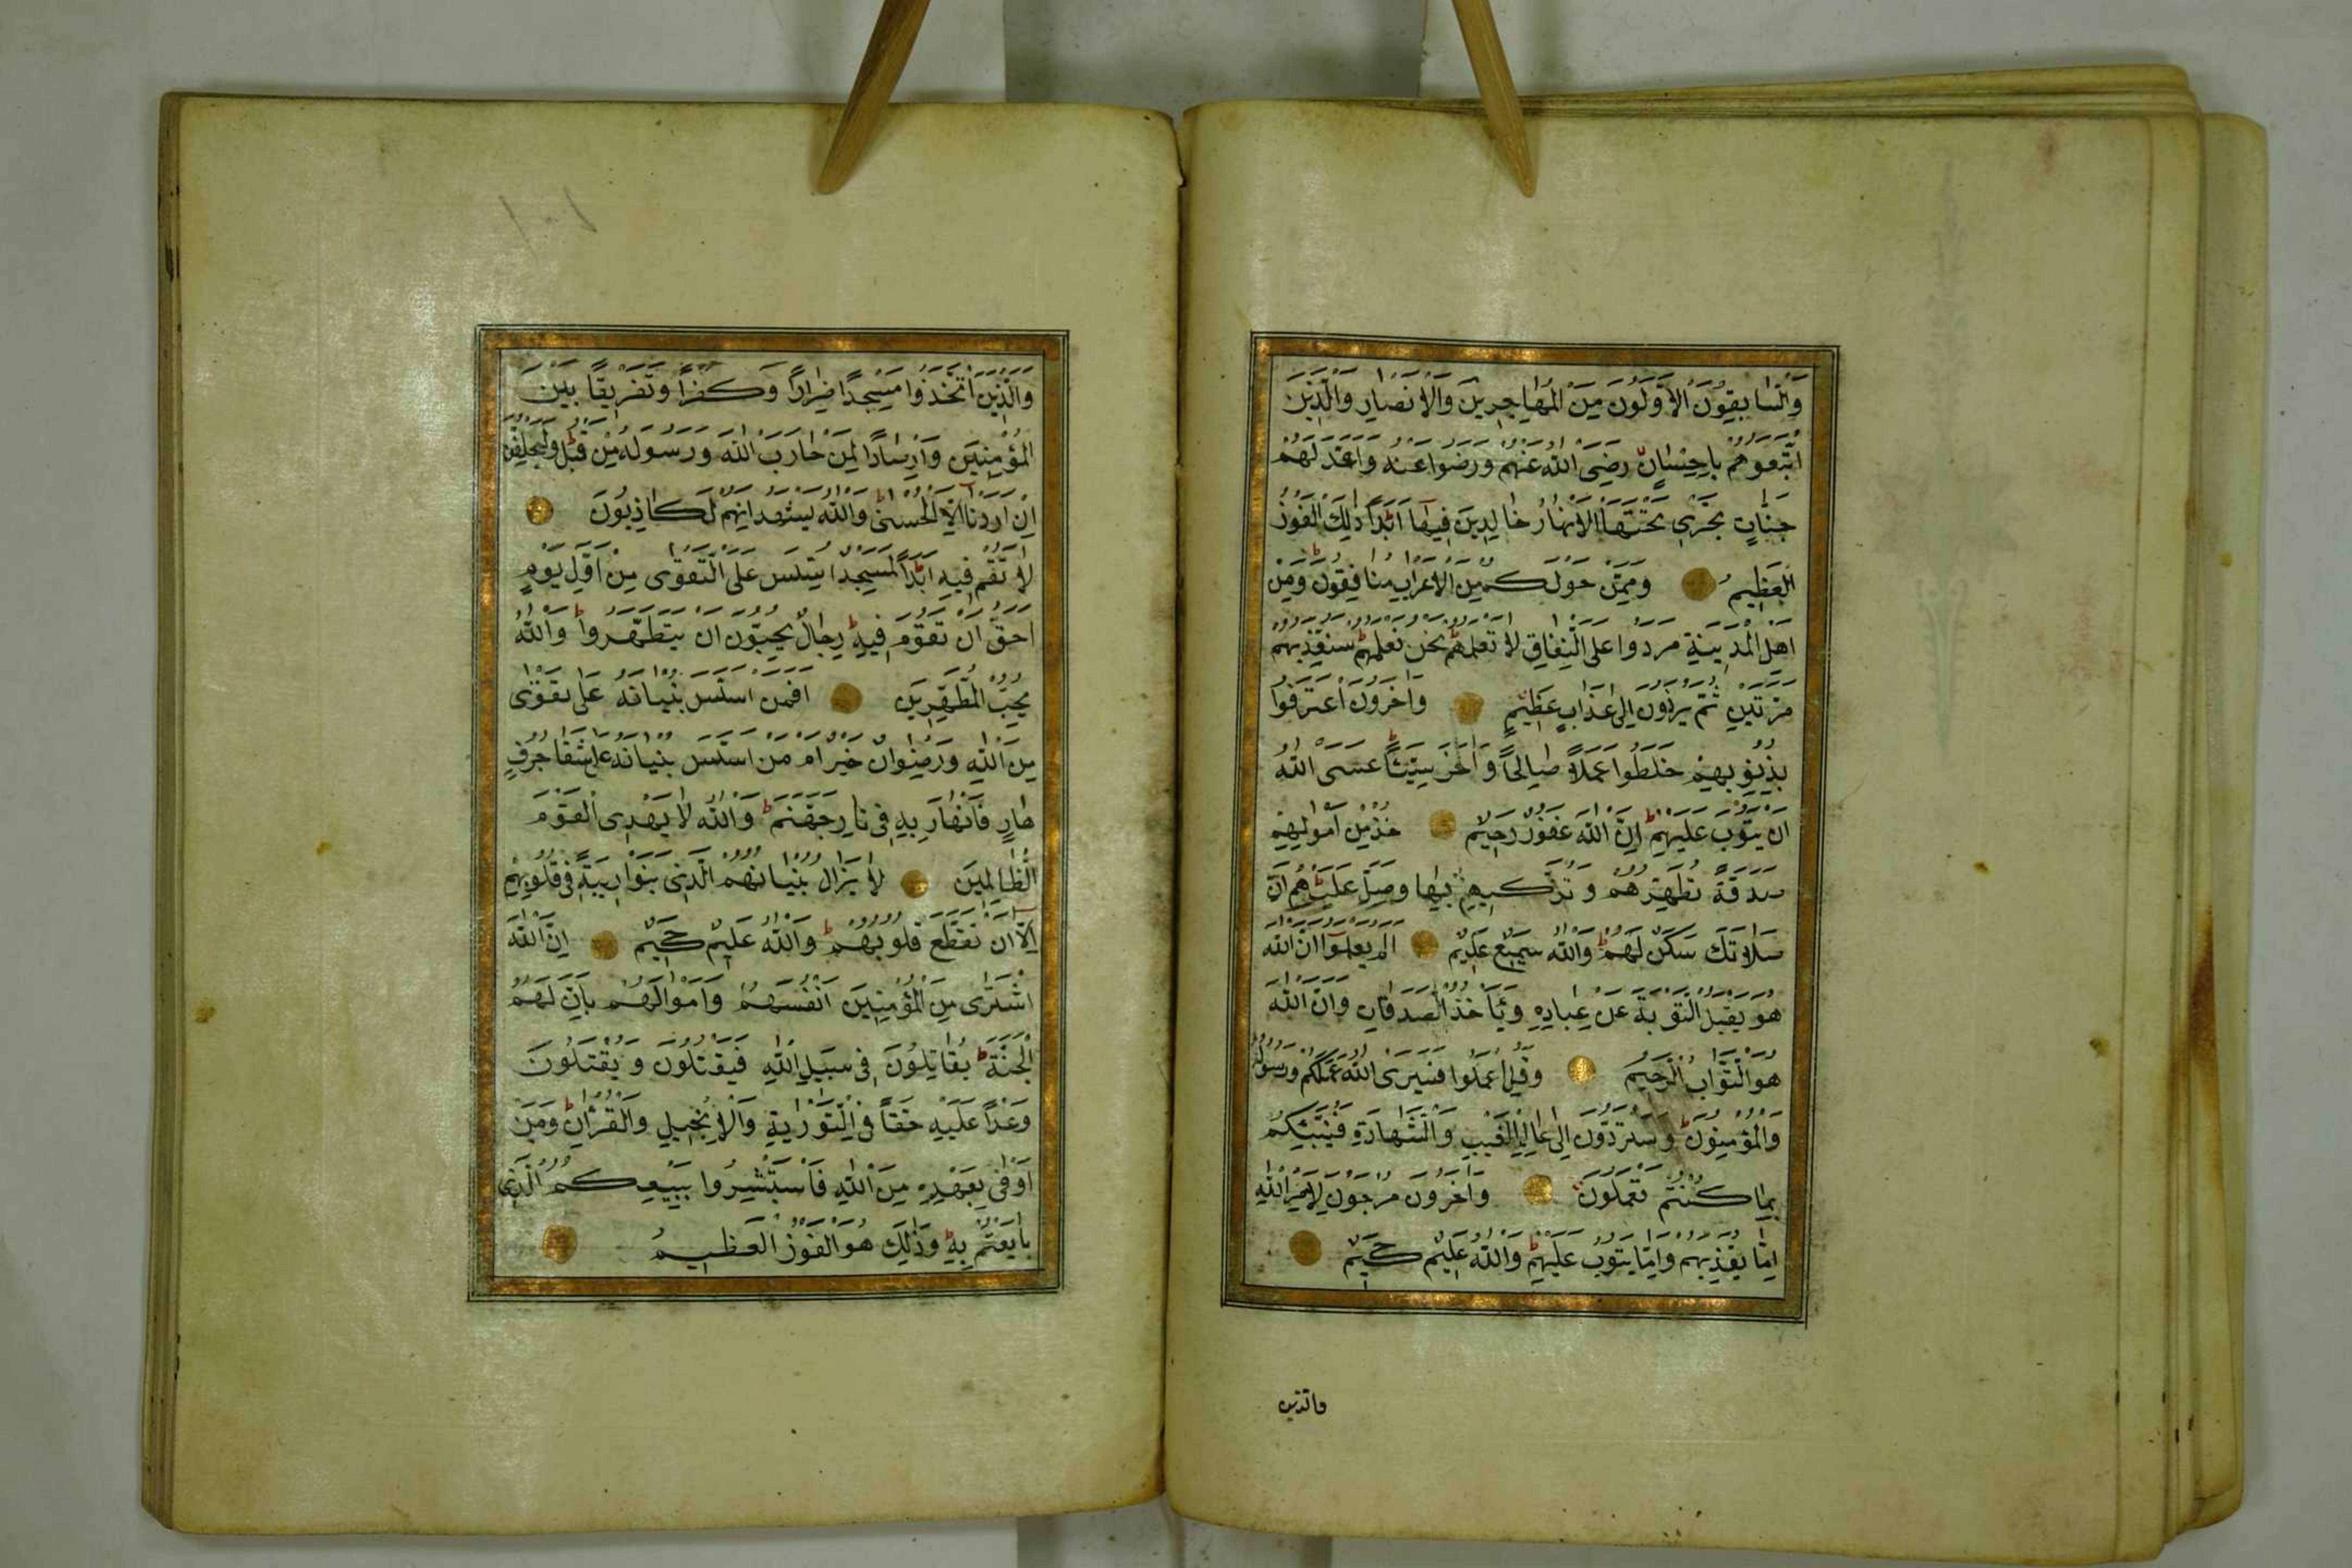 وَالسَّابِقُونَ الْاَوَّلُونَ مِنَ الْمُهَاجِرِينَ وَالْاَنْصَارِ وَالَّذِينَ
اتَّبَعُوهُمْ بِاِحْسَانٍ رَضِىَ اللّٰهُ عَنْهُمْ وَرَضُوا عَنْهُ وَاَعَدَّ لَهُمْ
جَنَّاتٍ تَجْرِى تَحْتَهَا الْاَنْهَارُ خَالِدِينَ فِيهَا اَبَدًا ط ذٰلِكَ الْفَوْزُ
الْعَظِيمُ وَمِمَّنْ حَوْلَكُمْ مِنَ الْاَعْرَابِ مُنَافِقُونَ ط وَمِنْ
اَهْلِ الْمَدِينَةِ مَرَدُوا عَلَى النِّفَاقِ لَا تَعْلَمُهُمْ ط نَحْنُ نَعْلَمُهُمْ ط سَنُعَذِّبُهُمْ
مَرَّتَيْنِ ثُمَّ يُرَدُّونَ اِلٰى عَذَابٍ عَظِيمٍ وَاٰخَرُونَ اعْتَرَفُوا
بِذُنُوبِهِمْ خَلَطُوا عَمَلًا صَالِحًا وَاٰخَرَ سَيِّئًا ط عَسَى اللّٰهُ
اَنْ يَتُوبَ عَلَيْهِمْ ط اِنَّ اللّٰهَ غَفُورٌ رَحِيمٌ خُذْ مِنْ اَمْوٰلِهِمْ
صَدَقَةً تُطَهِّرُهُمْ وَتُزَكِّيهِمْ بِهَا وَصَلِّ عَلَيْهِمْ ط اِنَّ
صَلَاتَكَ سَكَنٌ لَهُمْ ط وَاللّٰهُ سَمِيعٌ عَلِيمٌ اَلَمْ يَعْلَمُوا اَنَّ اللّٰهَ
هُوَ يَقْبَلُ التَّوْبَةَ عَنْ عِبَادِهِ وَيَأْخُذُ الصَّدَقَاتِ وَاَنَّ اللّٰهَ
هُوَ التَّوَّابُ الرَّحِيمُ وَقُلِ اعْمَلُوا فَسَيَرَى اللّٰهُ عَمَلَكُمْ وَرَسُولُهُ
وَالْمُؤْمِنُونَ ط وَسَتُرَدُّونَ اِلٰى عَالِمِ الْغَيْبِ وَالشَّهَادَةِ فَيُنَبِّئُكُمْ
بِمَا كُنْتُمْ تَعْمَلُونَ وَاٰخَرُونَ مُرْجَوْنَ لِاَمْرِ اللّٰهِ
اِمَّا يُعَذِّبُهُمْ وَاِمَّا يَتُوبُ عَلَيْهِمْ ط وَاللّٰهُ عَلِيمٌ حَكِيمٌ
والذين
وَالَّذِينَ اتَّخَذُوا مَسْجِدًا ضِرَارًا وَكُفْرًا وَتَفْرِيقًا بَيْنَ
الْمُؤْمِنِينَ وَاِرْصَادًا لِمَنْ حَارَبَ اللّٰهَ وَرَسُولَهُ مِنْ قَبْلُ ط وَلَيَحْلِفُنَّ
اِنْ اَرَدْنَا اِلَّا الْحُسْنٰى ط وَاللّٰهُ يَشْهَدُ اِنَّهُمْ لَكَاذِبُونَ
لَا تَقُمْ فِيهِ اَبَدًا ط لَمَسْجِدٌ اُسِّسَ عَلَى التَّقْوٰى مِنْ اَوَّلِ يَوْمٍ
اَحَقُّ اَنْ تَقُومَ فِيهِ ط رِجَالٌ يُحِبُّونَ اَنْ يَتَطَهَّرُوا ط وَاللّٰهُ
يُحِبُّ الْمُطَّهِّرِينَ اَفَمَنْ اَسَّسَ بُنْيَانَهُ عَلٰى تَقْوٰى
مِنَ اللّٰهِ وَرِضْوَانٍ خَيْرٌ اَمْ مَنْ اَسَّسَ بُنْيَانَهُ عَلٰى شَفَا جُرُفٍ
هَارٍ فَانْهَارَ بِهِ فِى نَارِ جَهَنَّمَ ط وَاللّٰهُ لَا يَهْدِى الْقَوْمَ
الظَّالِمِينَ لَا يَزَالُ بُنْيَانُهُمُ الَّذِى بَنَوْا رِيبَةً فِى قُلُوبِهِمْ
اِلَّا اَنْ تَقَطَّعَ قُلُوبُهُمْ ط وَاللّٰهُ عَلِيمٌ حَكِيمٌ اِنَّ اللّٰهَ
اشْتَرٰى مِنَ الْمُؤْمِنِينَ اَنْفُسَهُمْ وَاَمْوَالَهُمْ بِاَنَّ لَهُمُ
الْجَنَّةَ ط يُقَاتِلُونَ فِى سَبِيلِ اللّٰهِ فَيَقْتُلُونَ وَيُقْتَلُونَ
وَعْدًا عَلَيْهِ حَقًّا فِى التَّوْرٰيةِ وَالْاِنْجِيلِ وَالْقُرْاٰنِ ط وَمَنْ
اَوْفٰى بِعَهْدِهِ مِنَ اللّٰهِ فَاسْتَبْشِرُوا بِبَيْعِكُمُ الَّذِى
بَايَعْتُمْ بِهِ ط وَذٰلِكَ هُوَ الْفَوْزُ الْعَظِيمُ